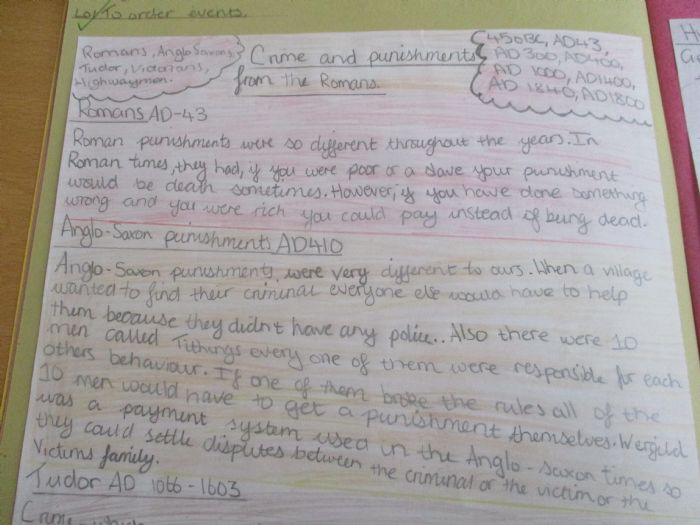 LO: To order events.
Romans, Anglo Saxons,
Tudor, Victorians,
Highwaymen.
Crime and punishments
from the Romans.
450BC, AD43,
AD300, AD400,
AD 1000, AD1400,
AD 1840, AD1800
Romans AD-43
Roman punishments were so different throughout the years. In
Roman times, they had, if you were poor or a slave your punishment
would be death sometimes. However, if you have done something
wrong and you were rich you could pay instead of being dead.
Anglo-Saxon punishments AD410
Anglo-Saxon punishments, were very different to ours. When a village
wanted to find their criminal everyone else would have to help
them because they didn't have any police.. Also there were 10
men called Tithings every one of them were responsible for each
others behaviour. If one of them broke the rules all of the
10 men would have to get a punishment themselves. Wergild
was a payment system used in the Anglo-Saxon times so
they could settle disputes between the criminal or the victim or the
Victims family.
Tudor AD 1066-1603
Crime